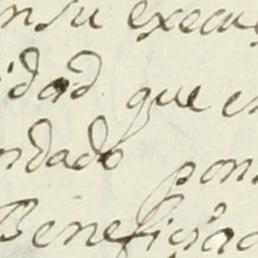 en su execu
idad que e
ndado pon
Beneficiad